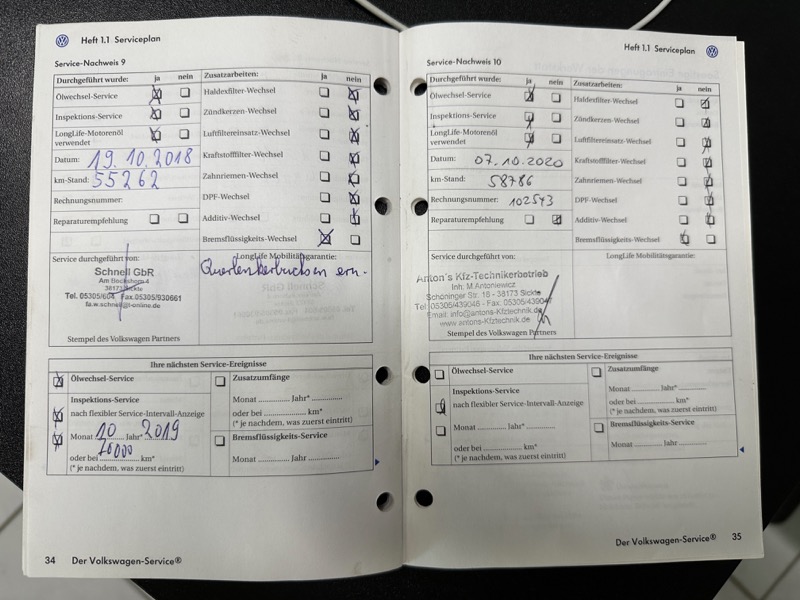 Heft 1.1 Serviceplan
Service-Nachweis 9
Durchgeführt wurde: ja nein
Ölwechsel-Service
Inspektions-Service
LongLife-Motorenöl
verwendet
Datum: 19.10.2018
km-Stand: 55262
Rechnungsnummer:
Reparaturempfehlung
Zusatzarbeiten: ja nein
Haldexfilter-Wechsel
Zündkerzen-Wechsel
Luftfiltereinsatz-Wechsel
Kraftstofffilter-Wechsel
Zahnriemen-Wechsel
DPF-Wechsel
Additiv-Wechsel
Bremsflüssigkeits-Wechsel
Service durchgeführt von:
Schnell GbR
Am Bockshorn 4
38173 Sickte
Tel. 05305/604 Fax.05305/930661
fa.w.schnell@t-online.de
Stempel des Volkswagen Partners
LongLife Mobilitätsgarantie:
Querlenkerbuchsen ern.
Ihre nächsten Service-Ereignisse
Ölwechsel-Service
Inspektions-Service
nach flexibler Service-Intervall-Anzeige
Monat 10 Jahr* 2019
oder bei 70000 km*
(* je nachdem, was zuerst eintritt)
Zusatzumfänge
Monat .............. Jahr* ..............
oder bei .............. km*
(* je nachdem, was zuerst eintritt)
Bremsflüssigkeits-Service
Monat .............. Jahr ..............
34 Der Volkswagen-Service®
Heft 1.1 Serviceplan
Service-Nachweis 10
Durchgeführt wurde: ja nein
Ölwechsel-Service
Inspektions-Service
LongLife-Motorenöl
verwendet
Datum: 07.10.2020
km-Stand: 58786
Rechnungsnummer: 102543
Reparaturempfehlung
Zusatzarbeiten: ja nein
Haldexfilter-Wechsel
Zündkerzen-Wechsel
Luftfiltereinsatz-Wechsel
Kraftstofffilter-Wechsel
Zahnriemen-Wechsel
DPF-Wechsel
Additiv-Wechsel
Bremsflüssigkeits-Wechsel
Service durchgeführt von:
Anton's Kfz-Technikerbetrieb
Inh. M.Antoniewicz
Schöninger Str. 16 - 38173 Sickte
Tel 05305/439046 - Fax: 05305/439047
Email: info@antons-Kfztechnik.de
www.antons-Kfztechnik.de
Stempel des Volkswagen Partners
LongLife Mobilitätsgarantie:
Ihre nächsten Service-Ereignisse
Ölwechsel-Service
Inspektions-Service
nach flexibler Service-Intervall-Anzeige
Monat .............. Jahr* ..............
oder bei .............. km*
(* je nachdem, was zuerst eintritt)
Zusatzumfänge
Monat .............. Jahr* ..............
oder bei .............. km*
(* je nachdem, was zuerst eintritt)
Bremsflüssigkeits-Service
Monat .............. Jahr ..............
Der Volkswagen-Service® 35